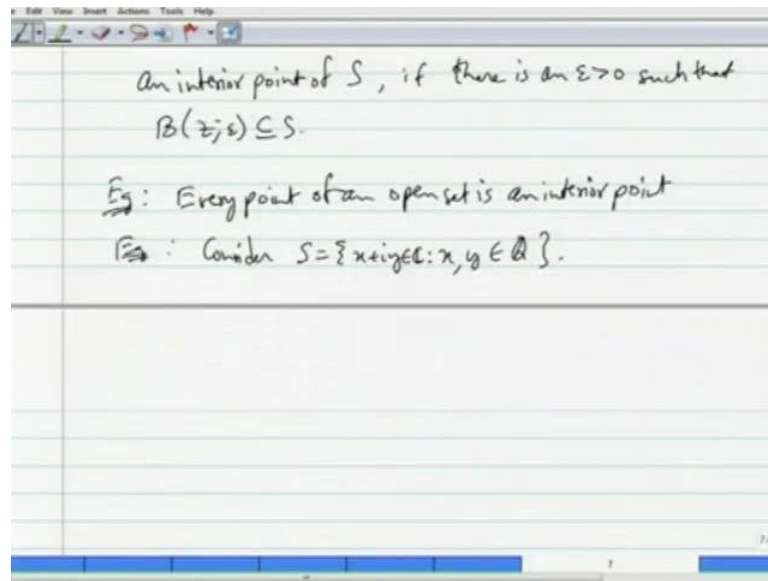 Edit View Insert Actions Tools Help
an interior point of S, if there is an ε>0 such that
B(z;ε) ⊆ S.
Eg: Every point of an open set is an interior point
Eg: Consider S={x+iy∈ℂ: x, y ∈ ℚ}.
7